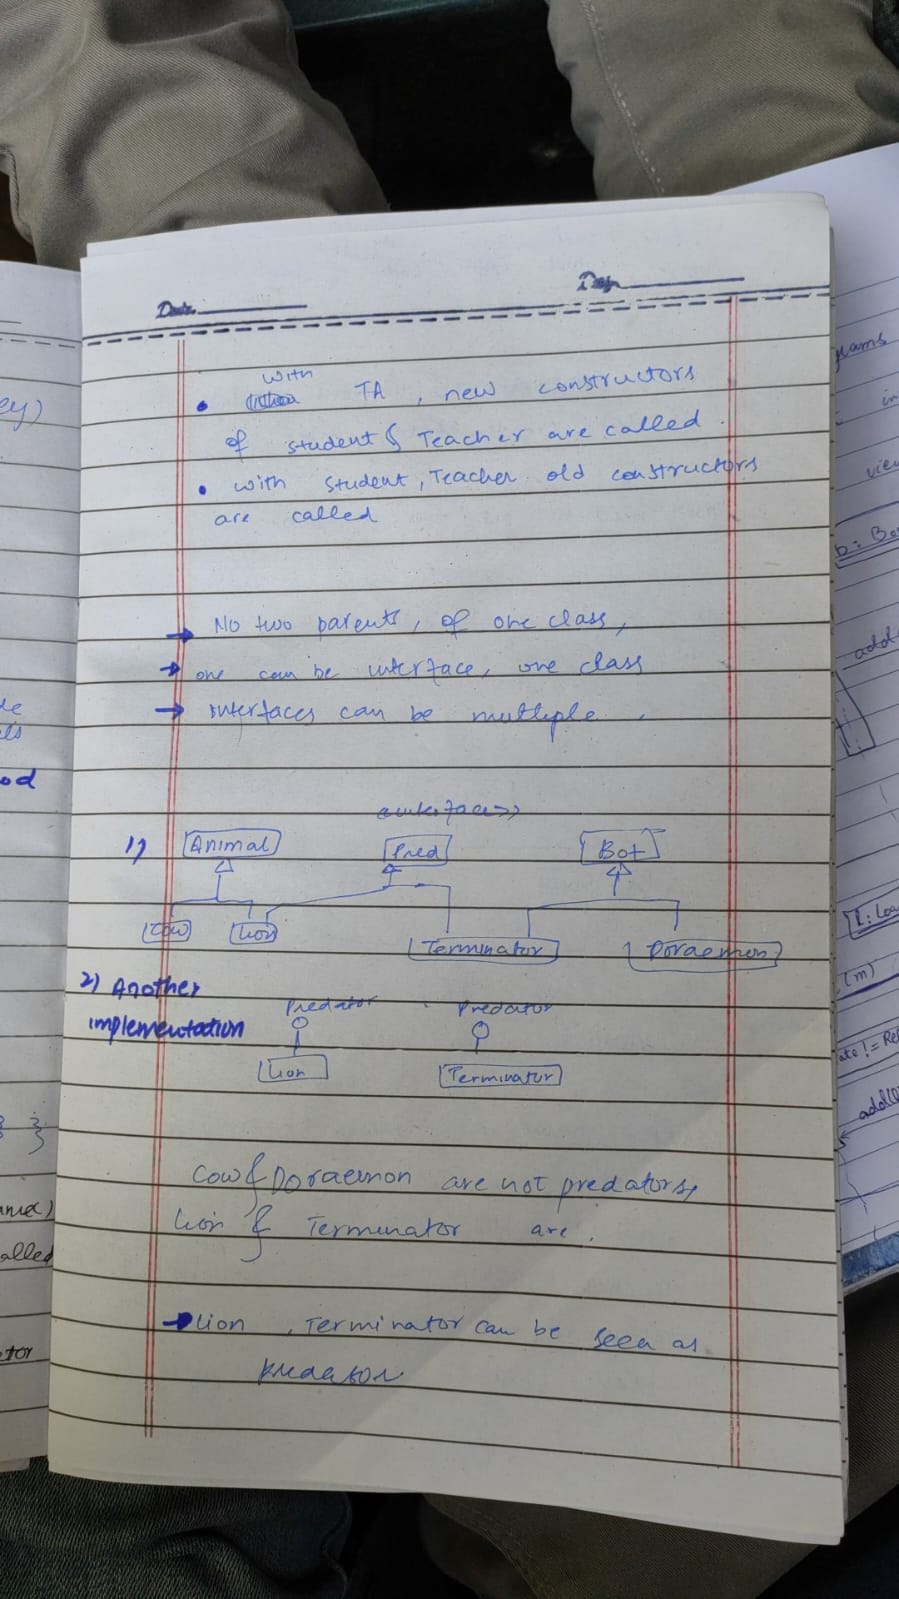 Date.
Day
with
• TA , new constructors
of student & Teacher are called .
• with student, Teacher old constructors
are called
→ No two parents, of one class,
→ one can be interface, one class
→ interfaces can be multiple .
<<interface>>
1) Animal Pred Bot
Cow Lion Terminator Doraemon
2) Another
implementation
Predator Predator
Lion Terminator
Cow & Doraemon are not predators,
Lion & Terminator are .
→ Lion , Terminator can be seen as
predator
ey)
od
alled
tor
grams
in
view
add
(m)